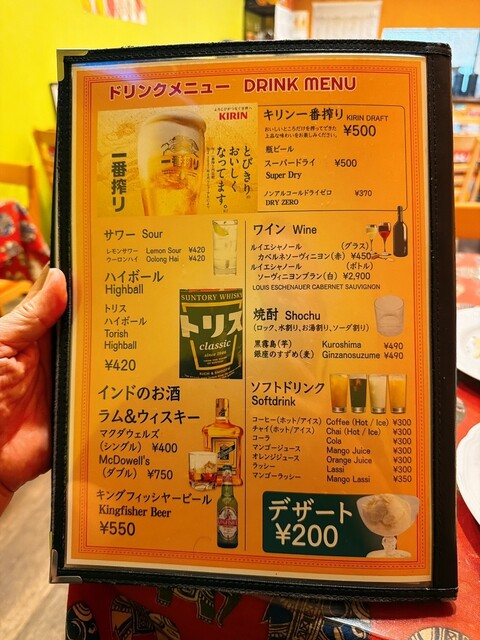 ドリンクメニュー DRINK MENU
KIRIN
とびきり
おいしく
なってます。
一番搾り
一番搾り
キリン一番搾り KIRIN DRAFT
おいしいところだけを搾ってできた
上品な味わいをお楽しみください。
¥500
瓶ビール
スーパードライ ¥500
Super Dry
ノンアルコールドライゼロ ¥370
DRY ZERO
サワー Sour
レモンサワー Lemon Sour ¥420
ウーロンハイ Oolong Hai ¥420
ハイボール
Highball
トリス
ハイボール
Torish
Highball
¥420
SUNTORY WHISKY
トリス
classic
インドのお酒
ラム&ウィスキー
マクダウェルズ
(シングル) ¥400
McDowell's
(ダブル) ¥750
キングフィッシャービール
Kingfisher Beer
¥550
ワイン Wine
ルイエシャノール (グラス)
カベルネソーヴィニヨン(赤) ¥450
ルイエシャノール (ボトル)
ソーヴィニヨンブラン(白) ¥2,900
LOUIS ESCHENAUER CABERNET SAUVIGNON
焼酎 Shochu
(ロック、水割り、お湯割り、ソーダ割り)
黒霧島(芋) Kuroshima ¥490
銀座のすずめ(麦) Ginzanosuzume ¥490
ソフトドリンク
Softdrink
コーヒー(ホット/アイス) Coffee (Hot / Ice) ¥300
チャイ(ホット/アイス) Chai (Hot / Ice) ¥300
コーラ Cola ¥300
マンゴージュース Mango Juice ¥300
オレンジジュース Orange Juice ¥300
ラッシー Lassi ¥300
マンゴーラッシー Mango Lassi ¥350
デザート
¥200